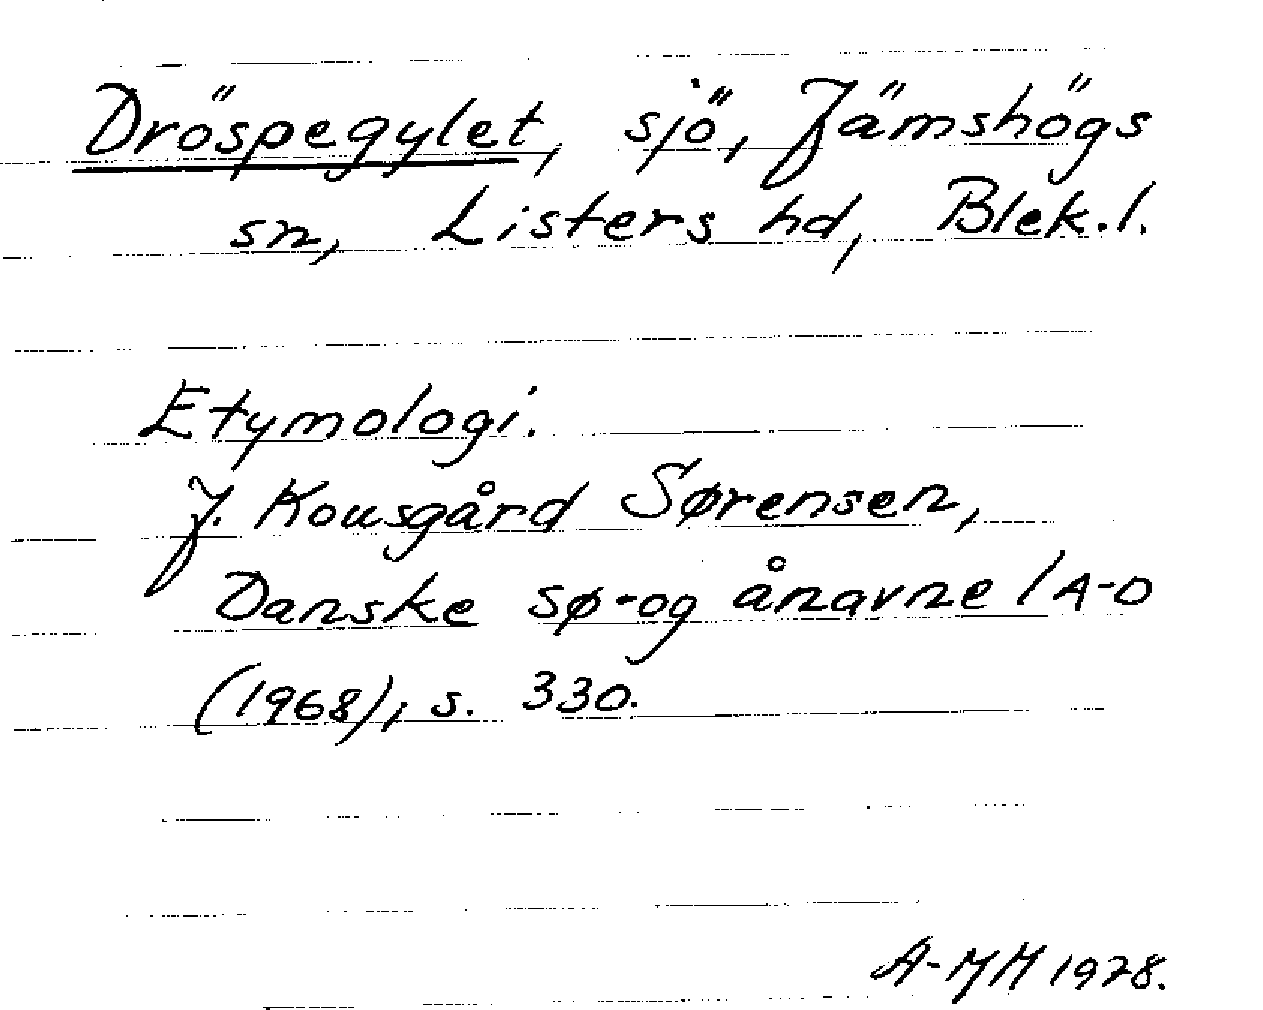 Dröspegylet, sjö, Jämshögs
sn, Listers hd, Blek.l.
Etymologi.
J. Kousgård Sørensen,
Danske sø-og ånavne 1 A-D
(1968), s. 330.
A-MM 1978.